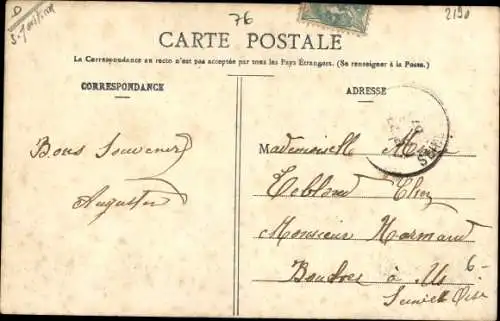 D
76
2190
CARTE POSTALE
La Correspondance au recto n'est pas acceptée par tous les Pays Étrangers. (Se renseigner à la Poste.)
CORRESPONDANCE
ADRESSE
Bons Souvenirs
Augustin
Mademoiselle
Leblond Chez
Monsieur Normand
à Us
Seine et Oise
6-